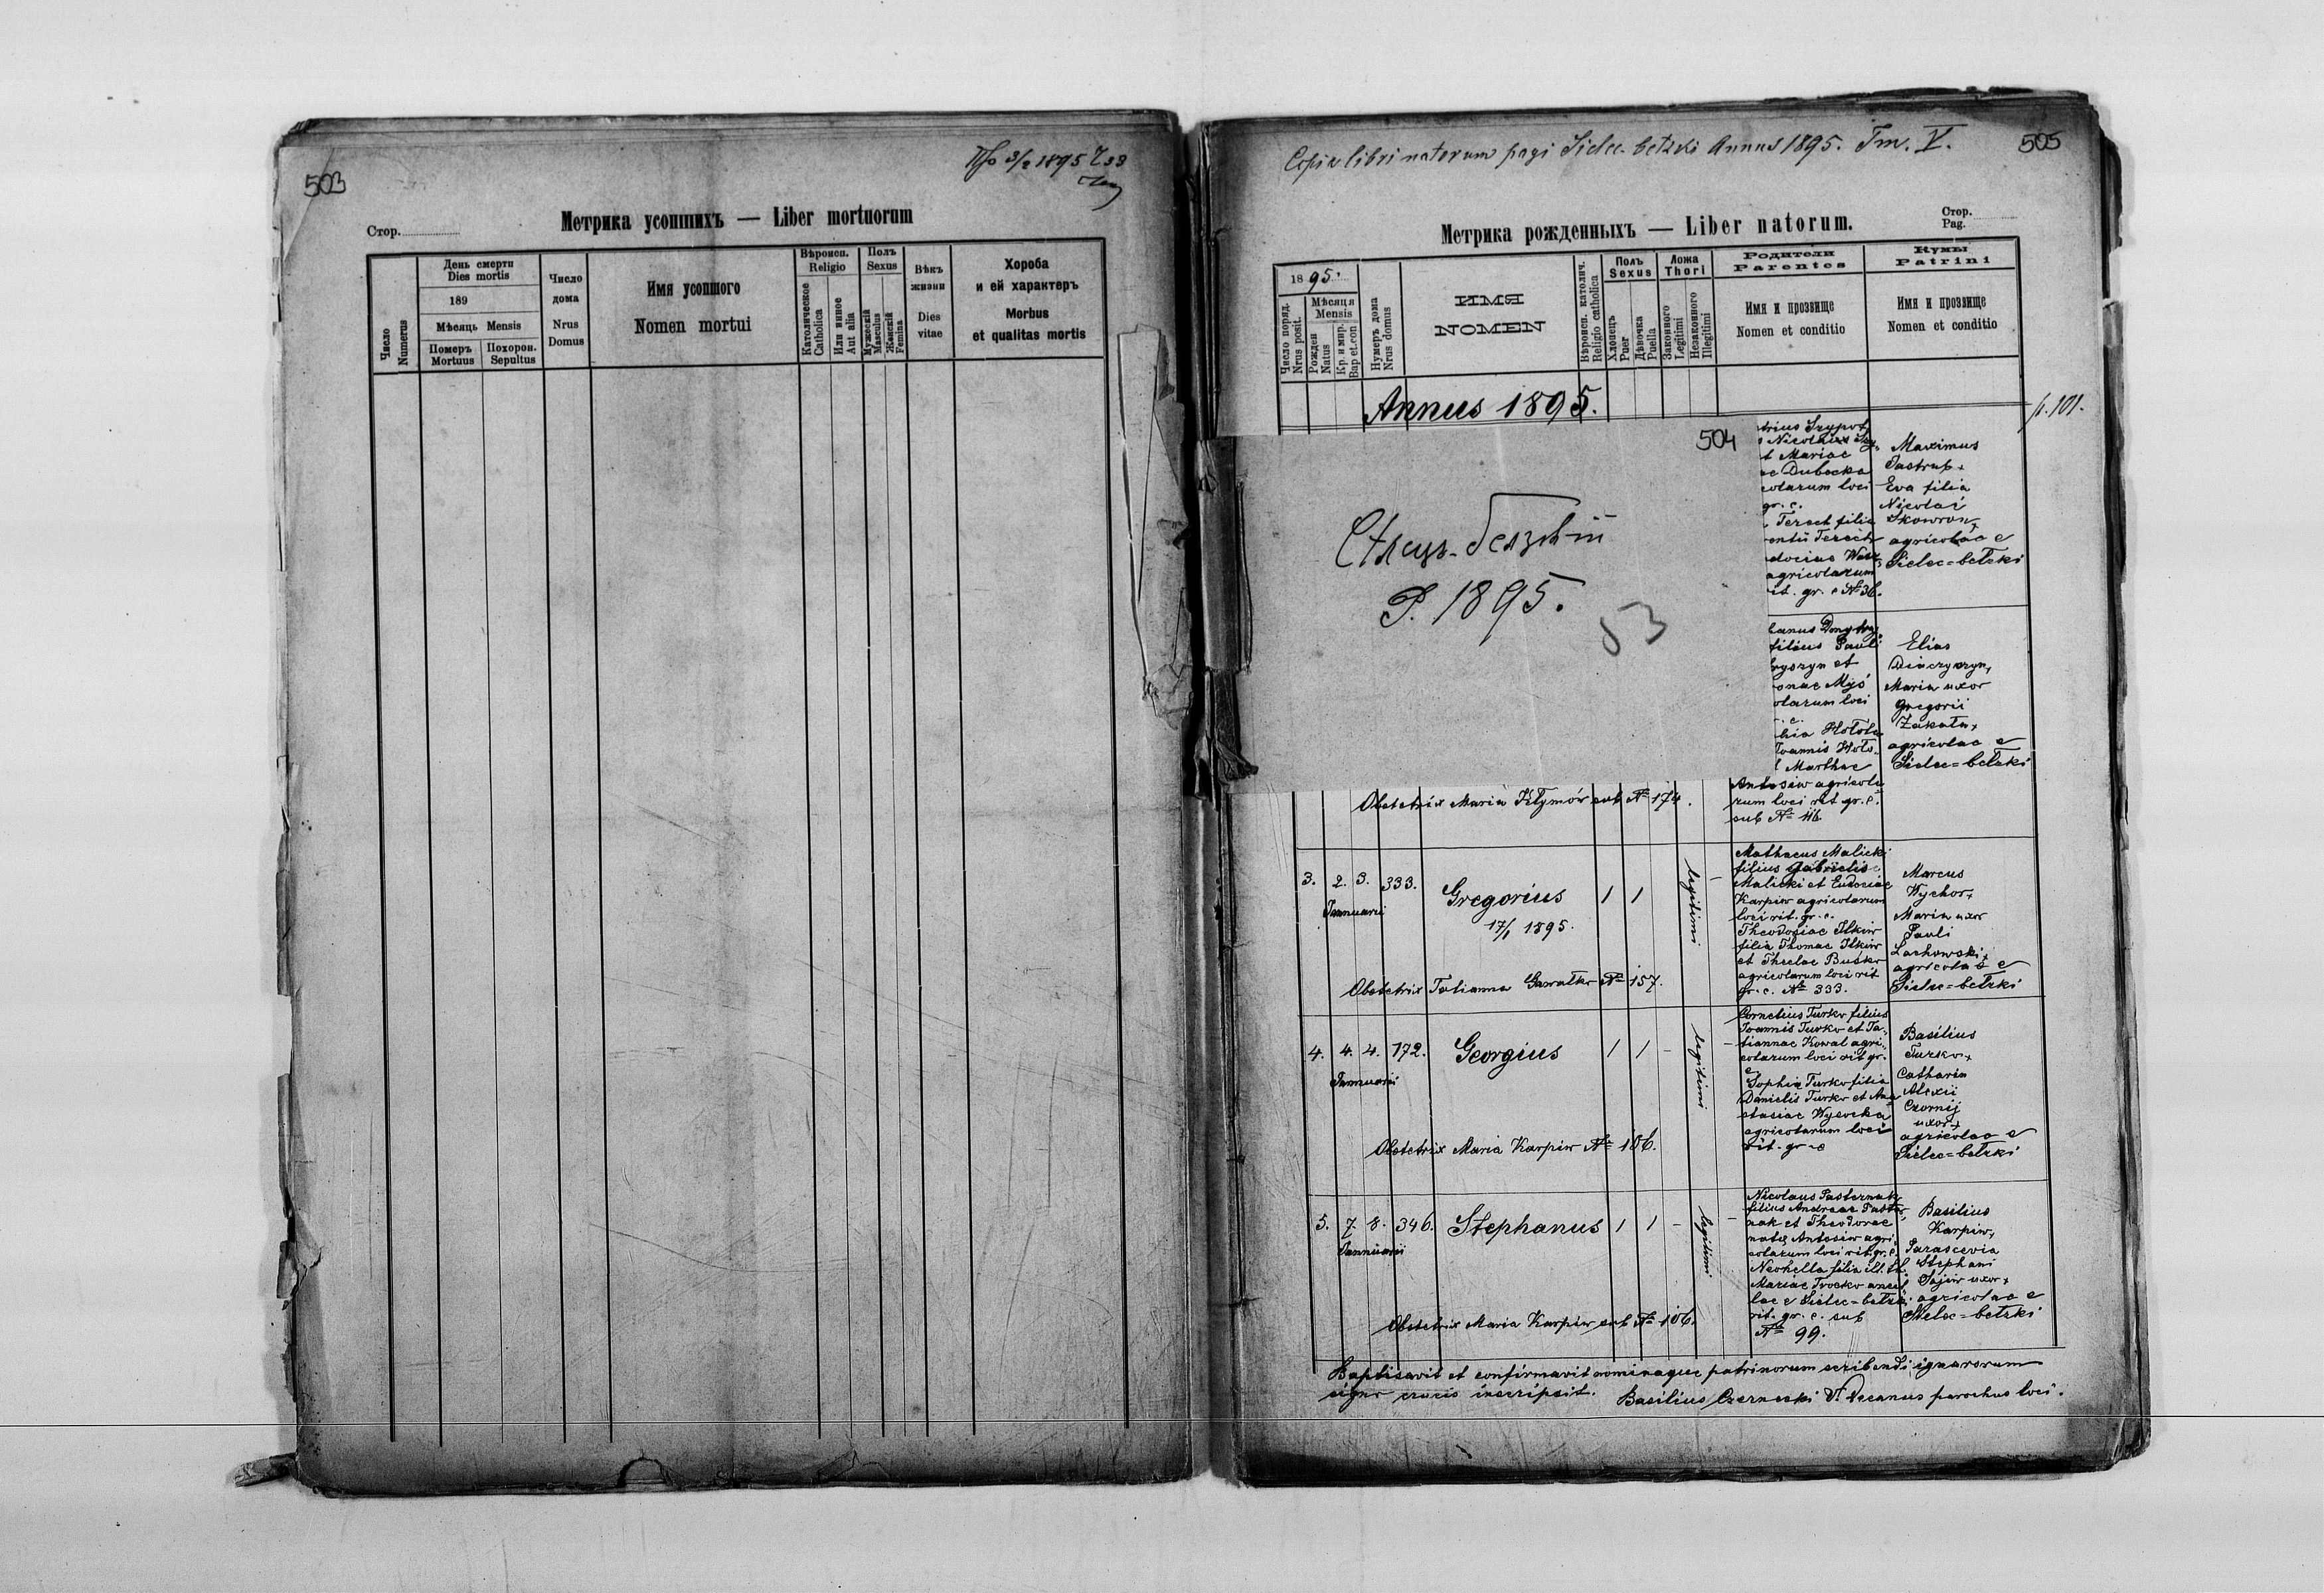 503
3/2 1895
Стор.
Метрика усопшихъ — Liber mortuorum
Число
Numerus
День смерти
Dies mortis
189
Мѣсяць Mensis
Померъ
Mortuus
Похорон.
Sepultus
Число
дома
Nrus
Domus
Имя усопшого
Nomen mortui
Вѣроисп.
Religio
Католическое
Catholica
Или инное
Aut alia
Полъ
Sexus
Мужескій
Masculus
Женскій
Femina
Вѣкъ
жизни
Dies
vitae
Хороба
и ей характеръ
Morbus
et qualitas mortis
Copia libri natorum pagi Sielec-bełzki Annus 1895. Tm. V.
505
Метрика рожденныхъ — Liber natorum.
Стор.
Pag.
1895.
Число поряд.
Nrus posit.
Мѣсяця
Mensis
Рожден
Natus
Кр. и мир.
Bap et.con
Нумеръ дома
Nrus domus
ИМЯ
NOMEN
Вѣроисп. католич.
Religio catholica
Полъ
Sexus
Хлопець
Puer
Дѣвочка
Puella
Ложа
Thori
Законного
Legitimi
Незаконного
Illegitimi
Родители
Parentes
Имя и прозвище
Nomen et conditio
Кумы
Patrini
Имя и прозвище
Nomen et conditio
Annus 1895.
p. 101.
504
Сѣлець-белзкій
Р. 1895.
53
t Mariae
ae Dubecka
colarum loci
gr. c.
Terech filia
entii Terech
agricolarum
rit. gr. c № 36.
Maximus
Jastrub +
Eva filia
Nicolai
Skowron +
agricolae e
Sielec=bełzki
filius Pauli
onae Myś
olarum loci
Joannis Hoło-
t Marthae
Antosiw agricola-
rum loci rit. gr. c.
sub № 116
Elias
Maria uxor
Gregorii
Zakała +
agricolae e
Sielec=bełzki
Obstetrix Maria Kłymów sub № 174.
3. 2. 3. 333.
Januarii
Gregorius
17/1 1895.
1 1
legitimi
Mathaeus Malicki
filius Gabrielis
Malicki et Eudociae
Karpiw agricolarum
loci rit. gr. c.
Theodosiae Ilkiw
filia Thomae Ilkiw
et Theclae Busko
agricolarum loci rit
gr. c. № 333.
Marcus
Wychor +
Maria uxor
Pauli
Lachowski +
agricolae e
Sielec=bełzki
Obstetrix Tatianna Gawałko № 157.
4. 4. 4. 172.
Januarii
Georgius
1 1 -
legitimi
Cornelius Turko filius
Joannis Turko et Ta-
tiannae Kowal agri-
colarum loci rit gr.
c.
Sophia Turko filia
Danielis Turko et Ana-
stasiae Wysocka
agricolarum loci
rit. gr. c
Basilius
Turko +
Catharina
Alexii
Czornij
uxor +
agricolae e
Sielec=bełzki
Obstetrix Maria Karpiw № 106.
5. 7. 8. 346.
Januarii
Stephanus
1 1 -
legitimi
Nicolaus Pasternak
filius Andreae Paster-
nak et Theodorae
natae Antosiw agri-
colarum loci rit. gr. c.
filia ill. th.
Mariae Trocko ancil-
lae e Sielec=bełzki
rit. gr. c. sub
№ 99.
Basilius
Karpiw +
Parascevia
Stephani
uxor +
agricolae e
Sielec=bełzki
Obstetrix Maria Karpiw sub № 106.
Baptisavit et confirmavit nominaque patrinorum scribendi ignarorum
signo crucis inscripsit. Basilius Czernecki V. Decanus parochus loci.